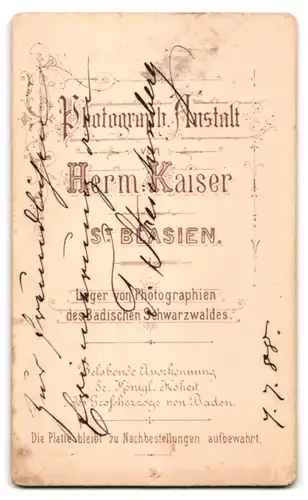 Photograph. Anstalt
von
Herm. Kaiser
ST. BLASIEN.
Lager von Photographien
des Badischen Schwarzwaldes.
Belobende Anerkennung
Sr. Königl. Hoheit
des Grossherzogs von Baden.
Die Platte bleibt zu Nachbestellungen aufbewahrt.
Zur freundlichen
Erinnerung an
7.7.88.